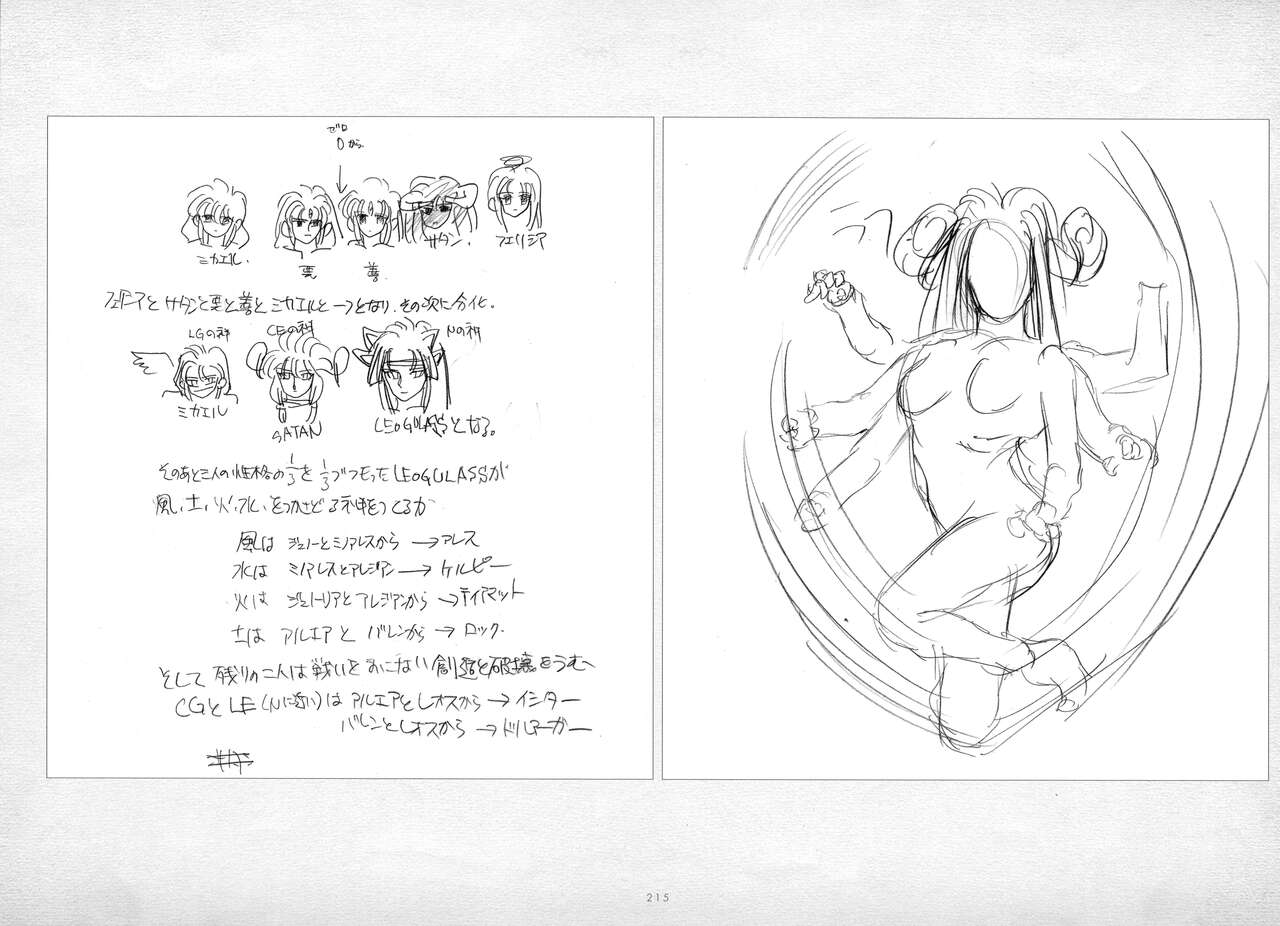 ゼロ
0から
ミカエル. 悪 善 サタン. フェリシア
フェリシアとサタンと悪と善とミカエルと一つとなり、その次に分化。
LGの神 CEの神 Nの神
ミカエル SATAN LEOGULASSとなる。
そのあと三人の性格の1/3を1/3づつもったLEOGULASSが
風、土、火、水、をつかさどる神をつくるが
風は ジュノーとミノアレスから→アレス
水は ミノアレスとアレジアン→ケルピー
火は ジュトーリアとアレジアンから→ティアマット
土は アルエアと バレンから→ロック.
そして残りの二人は戦いをおこない創造と破壊をうむ
CGとLE(Nに近い)は アルエアとレオスから→イシター
バレンとレオスから→ドルアーガー
215